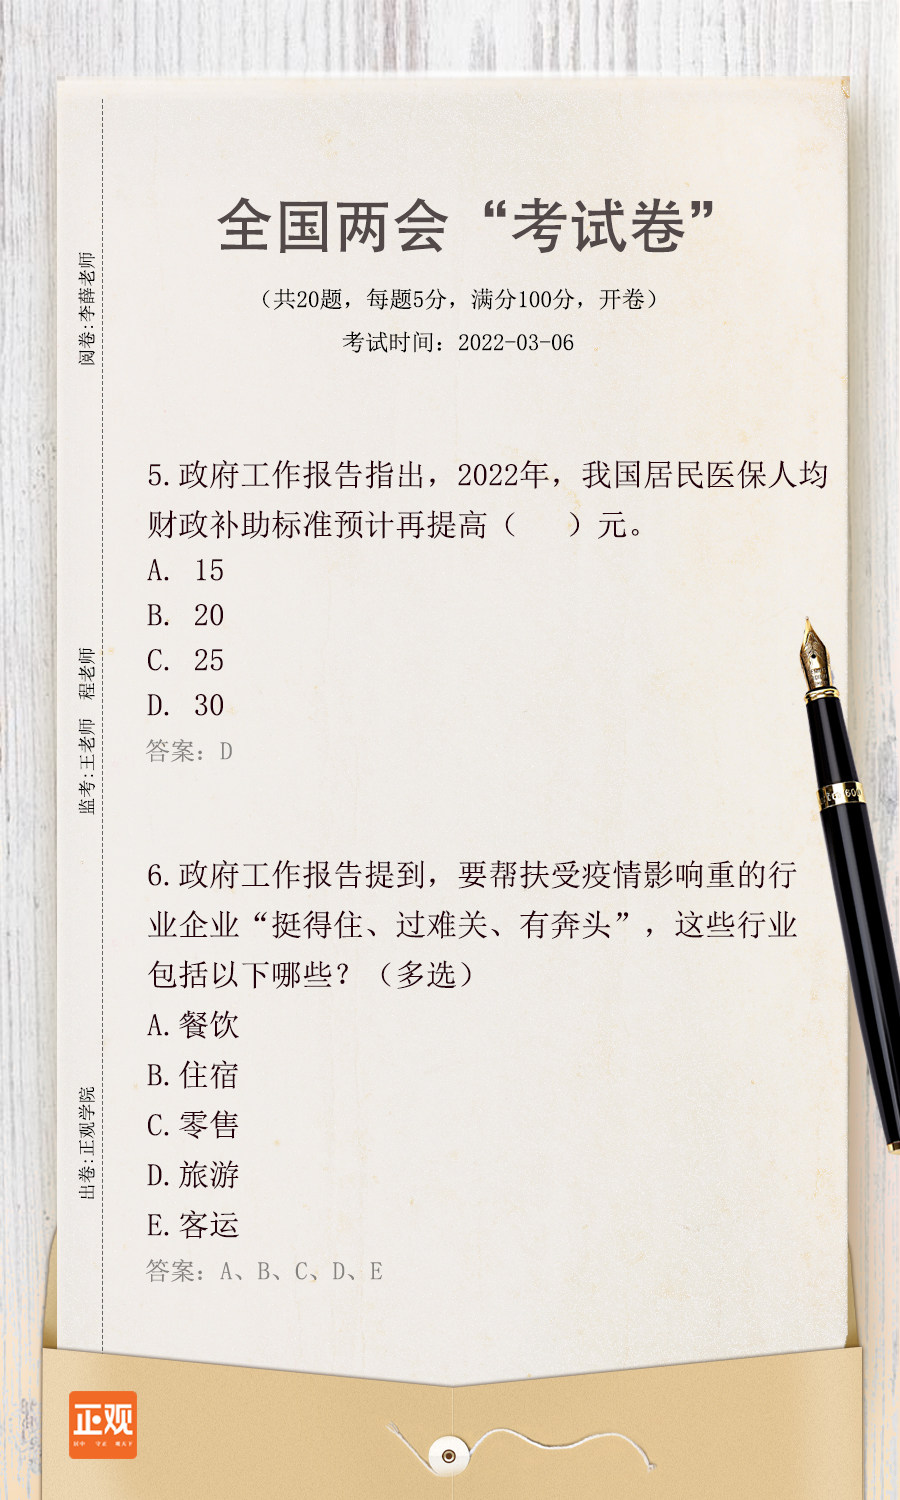 全国两会“考试卷”
（共20题，每题5分，满分100分，开卷）
考试时间：2022-03-06
阅卷:李薛老师
监考:王老师 程老师
出卷:正观学院
5.政府工作报告指出，2022年，我国居民医保人均
财政补助标准预计再提高（ ）元。
A. 15
B. 20
C. 25
D. 30
答案：D
6.政府工作报告提到，要帮扶受疫情影响重的行
业企业“挺得住、过难关、有奔头”，这些行业
包括以下哪些？（多选）
A.餐饮
B.住宿
C.零售
D.旅游
E.客运
答案：A、B、C、D、E
正观